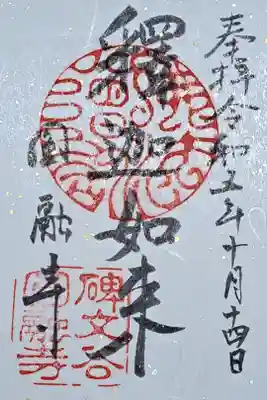 奉拝令和五年十月十四日
釋迦如来
圓融寺
碑文谷
圓融寺